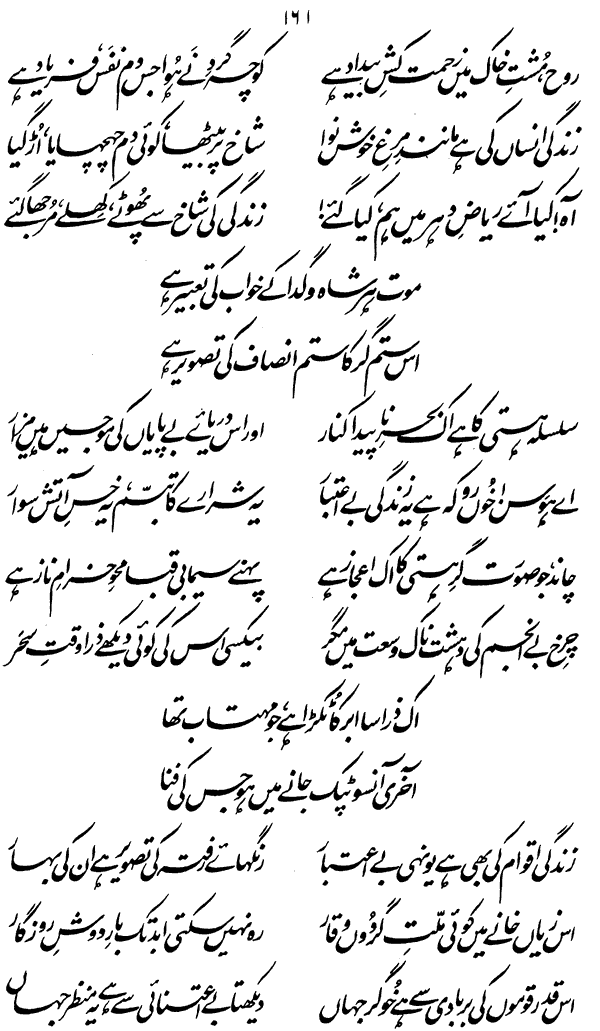 ۱۶۱
روح، مُشتِ خاک میں زحمت کشِ بیداد ہے کوچہ گردِ نَے ہُوا جس دم نفَس، فریاد ہے
زندگی انساں کی ہے مانندِ مرغِ خوش نوا شاخ پر بیٹھا، کوئی دم چہچہایا، اُڑ گیا
آہ! کیا آئے ریاضِ دہر میں ہم، کیا گئے! زندگی کی شاخ سے پُھوٹے، کِھلے، مُرجھا گئے
موت ہر شاہ و گدا کے خواب کی تعبیر ہے
اس ستم گر کا ستم انصاف کی تصویر ہے
سلسلہ ہستی کا ہے اک بحرِ نا پیدا کنار اور اس دریائے بے پایاں کی موجیں ہیں مزار
اے ہَوس! خُوں رو کہ ہے یہ زندگی بے اعتبار یہ شرارے کا تبسّم، یہ خسِ آتش سوار
چاند، جو صورت گرِ ہستی کا اک اعجاز ہے پہنے سیمابی قبا محوِ خرامِ ناز ہے
چرخِ بے انجم کی دہشت ناک وسعت میں مگر بیکسی اس کی کوئی دیکھے ذرا وقتِ سحَر
اک ذرا سا ابر کا ٹکڑا ہے، جو مہتاب تھا
آخری آنسو ٹپک جانے میں ہو جس کی فنا
زندگی اقوام کی بھی ہے یونہی بے اعتبار رنگہائے رفتہ کی تصویر ہے ان کی بہار
اس زیاں خانے میں کوئی ملّتِ گردُوں وقار رہ نہیں سکتی ابد تک بارِ دوشِ روزگار
اس قدر قوموں کی بربادی سے ہے خُوگر جہاں دیکھتا بے اعتنائی سے ہے یہ منظر جہاں